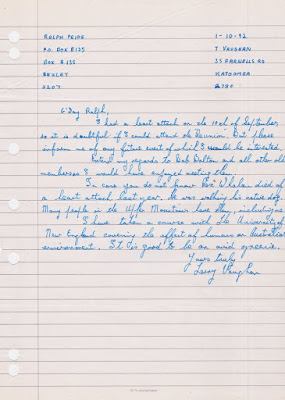 RALPH PRIDE 1-10-92
P.O. BOX E135 T VAUGHAN
BOX E135 35 FARNELLS RD
KATOOMBA
2207 2780
G'Day Ralph,
I had a heart attack on the of September
so it is doubtful if I could attend the Reunion. But please
inform me of any future event of which I would be interested.
my regards to Bob Dalton and all other old
members I would have enjoyed meeting them.
In case you do not know Whelan died of
a heart attack last year. He was walking his native dog.
Many people in the Upper Mountains
I have a course with the University of
New England covering the effect of humans on Australian
environment. It is good to be an avid greenie.
Yours truly
Vaughan